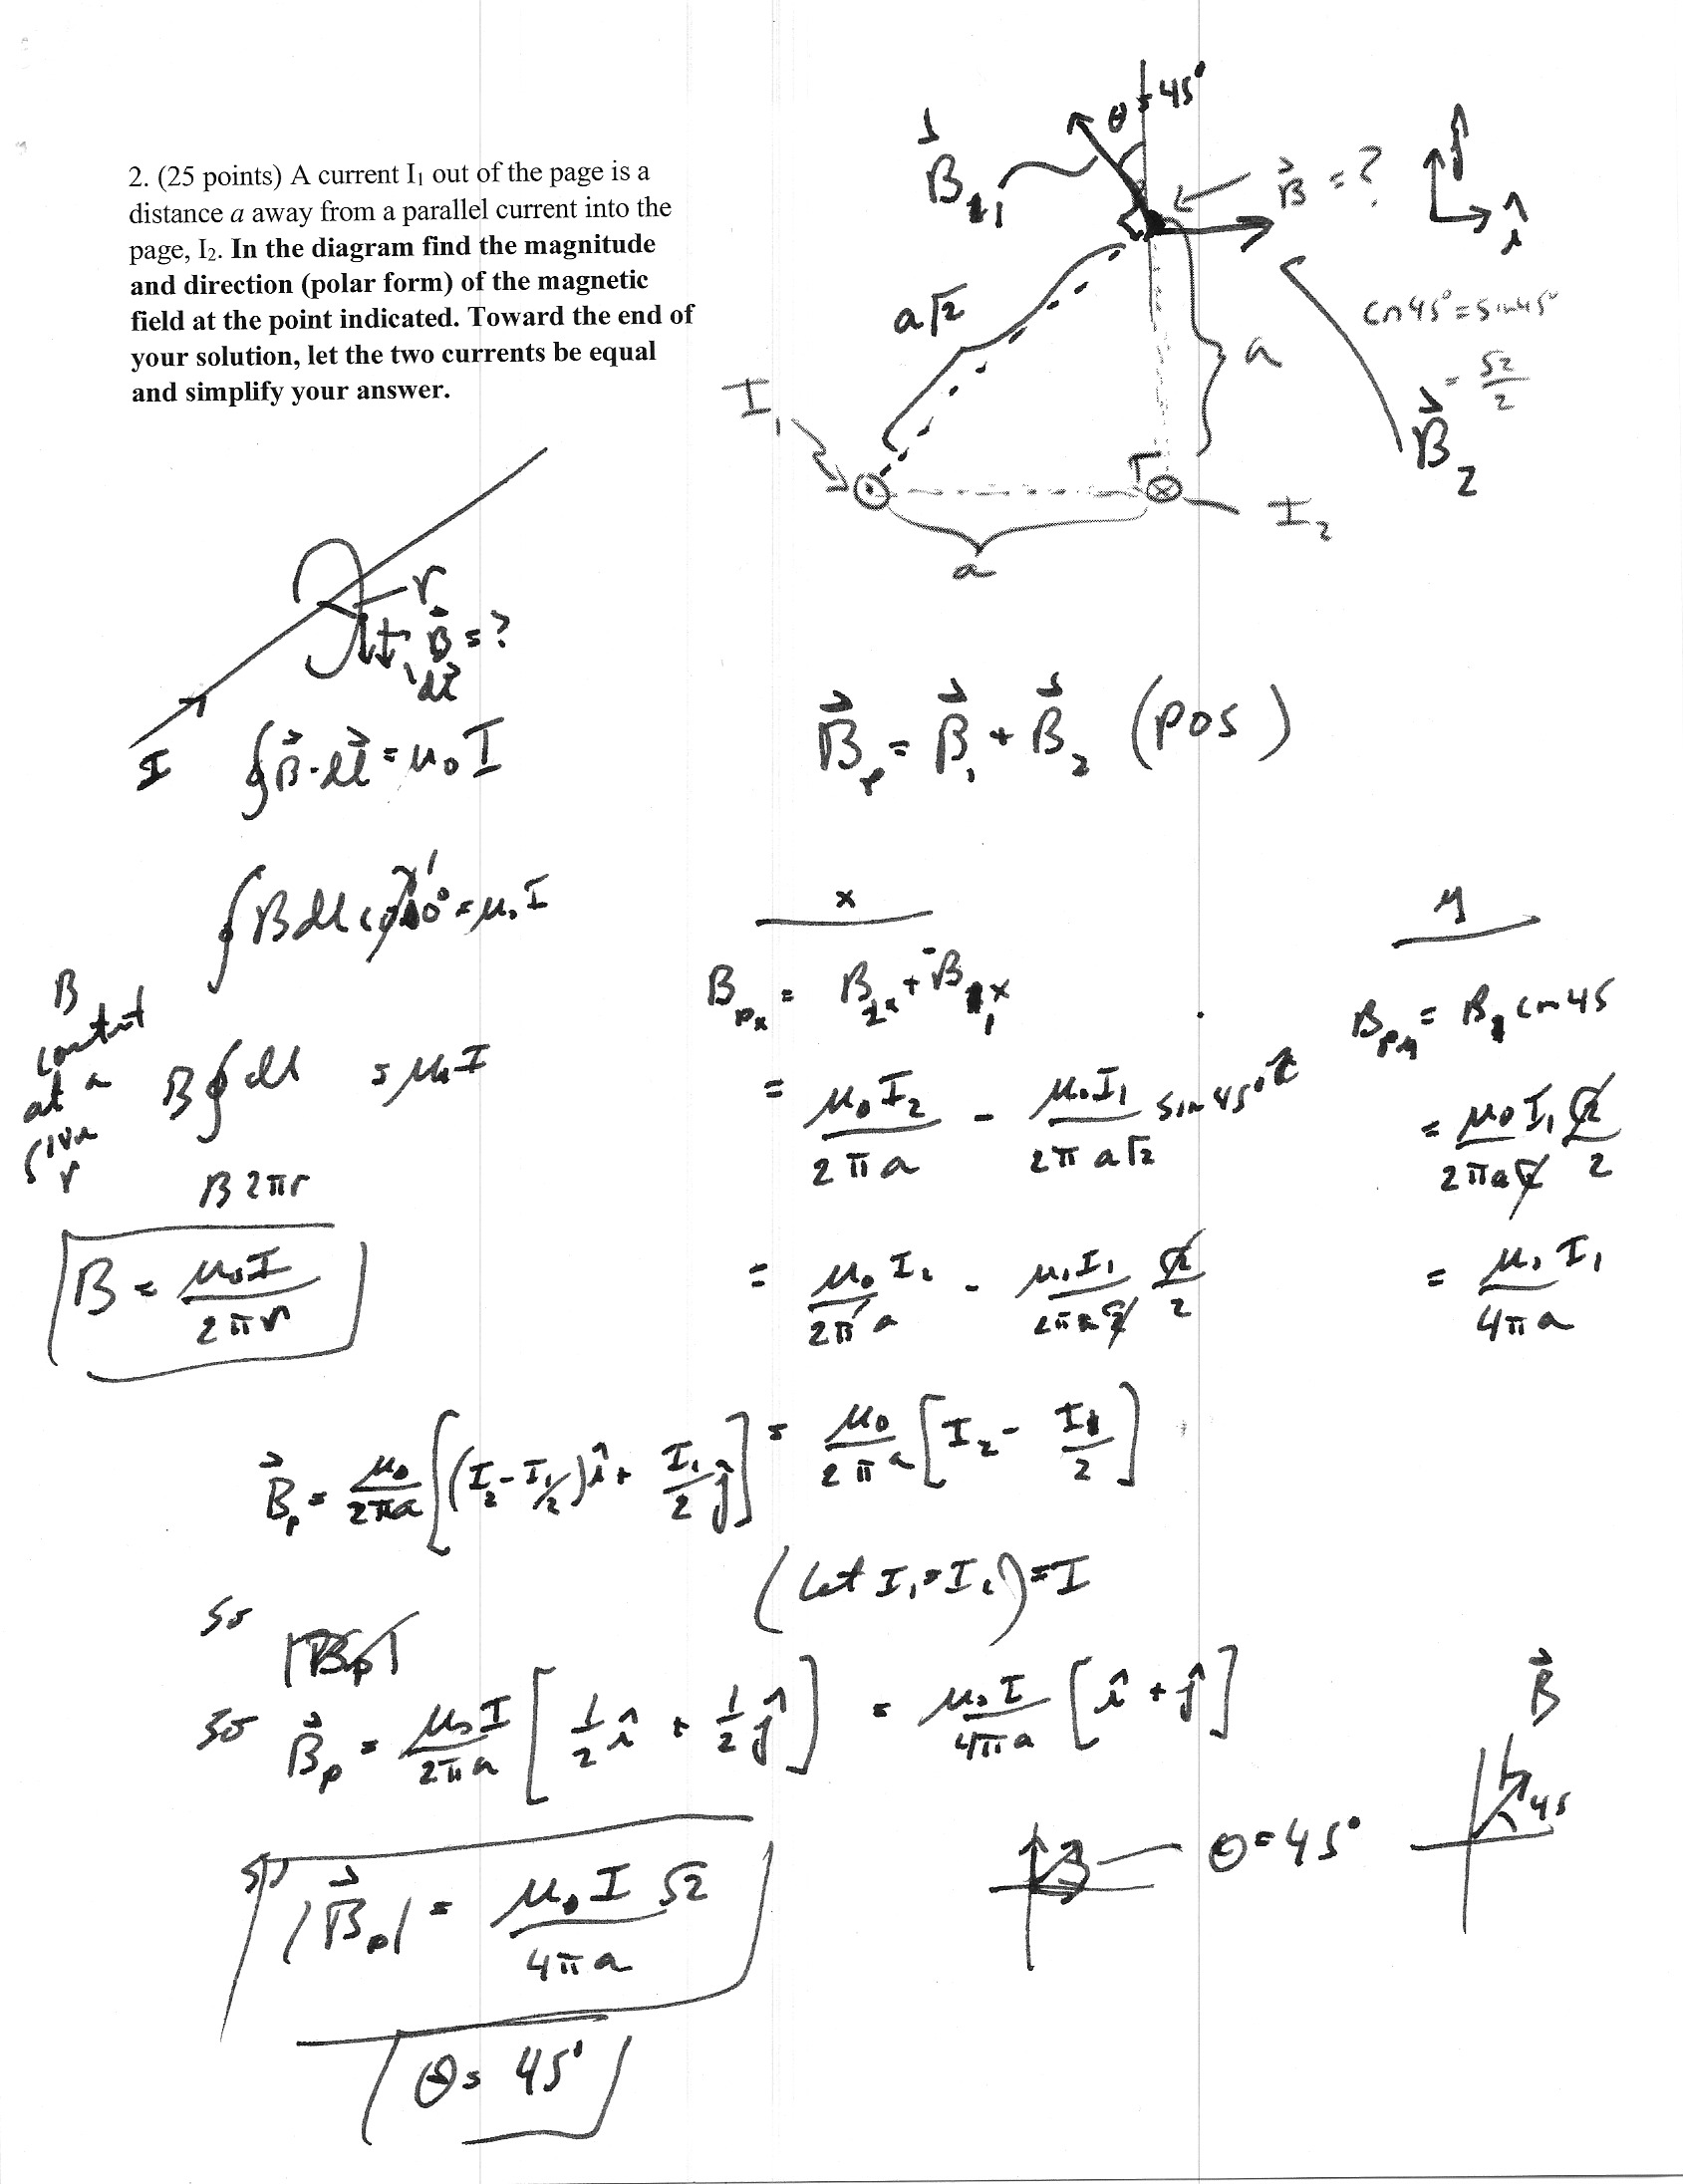 2. (25 points) A current I₁ out of the page is a
distance a away from a parallel current into the
page, I₂. In the diagram find the magnitude
and direction (polar form) of the magnetic
field at the point indicated. Toward the end of
your solution, let the two currents be equal
and simplify your answer.
θ = 45°
B⃗₁
B⃗ = ?
ĵ
î
cos 45° = sin 45°
= √2/2
a√2
a
B⃗₂
I₁
I₂
a
r
B⃗ = ?
dl⃗
I
∮ B⃗ · dl⃗ = μ₀ I
B⃗ₚ = B⃗₁ + B⃗₂ (POS)
∮ B dl cos 0° = μ₀ I
1
B
constant
at a
given
r
B ∮ dl = μ₀ I
B 2πr
B = μ₀I / 2πr
x
Bₚₓ = B₂ₓ + -B₁ₓ
= μ₀I₂ / 2πa - μ₀I₁ / 2πa√2 sin 45°
= μ₀I₂ / 2πa - μ₀I₁ / 2πa√2 √2/2
y
Bₚy = B₁ cos 45
= μ₀I₁ / 2πa√2 √2/2
= μ₀I₁ / 4πa
B⃗ₚ = μ₀ / 2πa [(I₂ - I₁/2) î + I₁/2 ĵ] = μ₀ / 2πa [I₂ - I₁/2]
(Let I₁ = I₂) = I
so
|Bₚ|
so B⃗ₚ = μ₀I / 2πa [1/2 î + 1/2 ĵ] = μ₀I / 4πa [î + ĵ]
B⃗
45
θ = 45°
so |B⃗ₚ| = μ₀I√2 / 4πa
θ = 45°